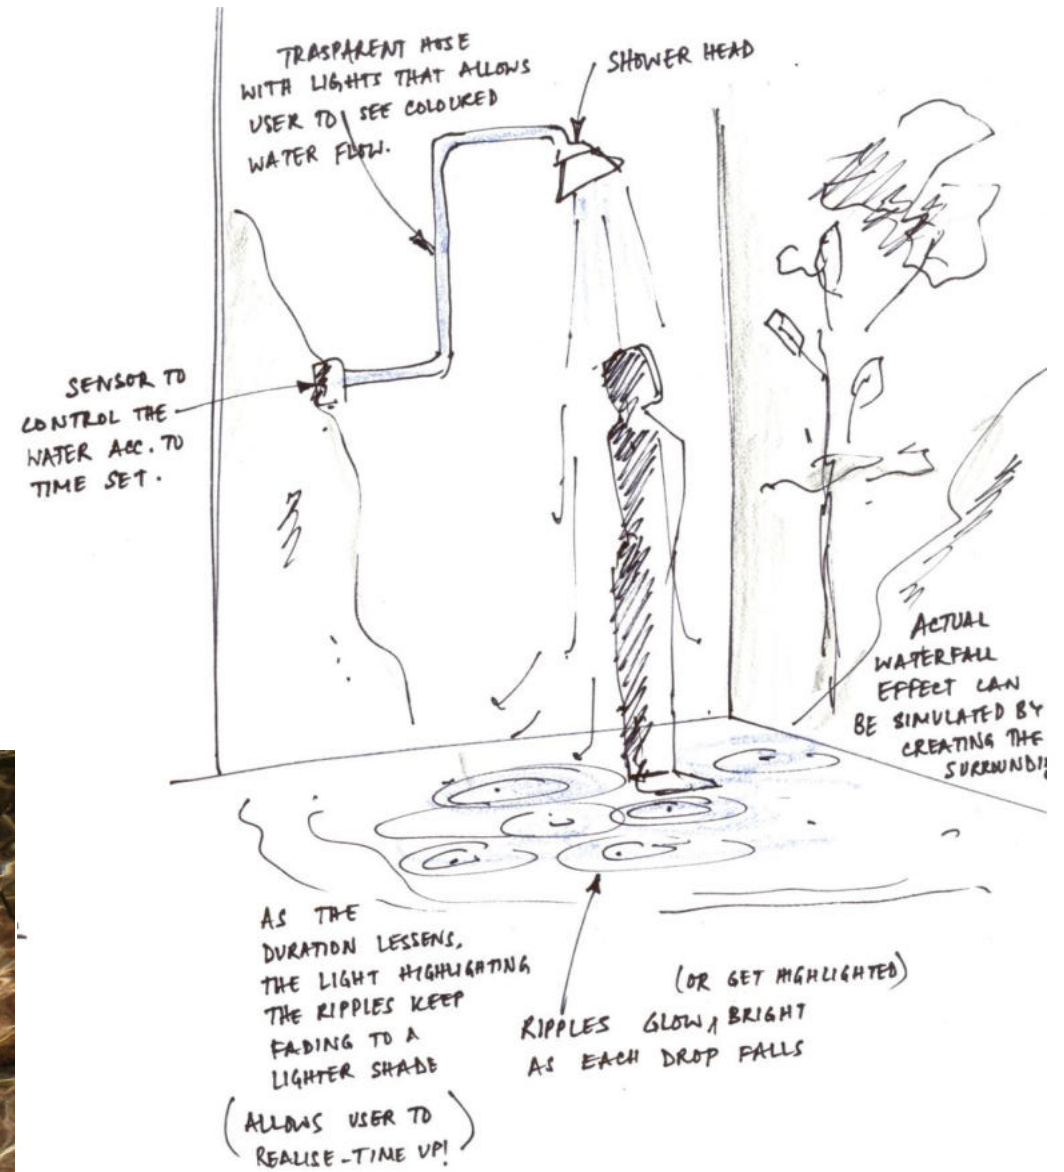 TRASPARENT HOSE
WITH LIGHTS THAT ALLOWS
USER TO SEE COLOURED
WATER FLOW.
SHOWER HEAD
SENSOR TO
CONTROL THE
WATER ACC. TO
TIME SET.
ACTUAL
WATERFALL
EFFECT CAN
BE SIMULATED BY
CREATING THE
AS THE
DURATION LESSENS,
THE LIGHT HIGHLIGHTING
THE RIPPLES KEEP
FADING TO A
LIGHTER SHADE
(ALLOWS USER TO
REALISE-TIME UP!)
(OR GET HIGHLIGHTED)
RIPPLES GLOW BRIGHT
AS EACH DROP FALLS